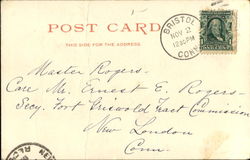 POST CARD
THIS SIDE FOR THE ADDRESS.
BRISTOL
NOV 2
12 30 PM
CONN
Master Rogers-
Care Mr. Ernest E. Rogers-
Secy. Fort Griswold Tract Commission
New London
Conn.
REC